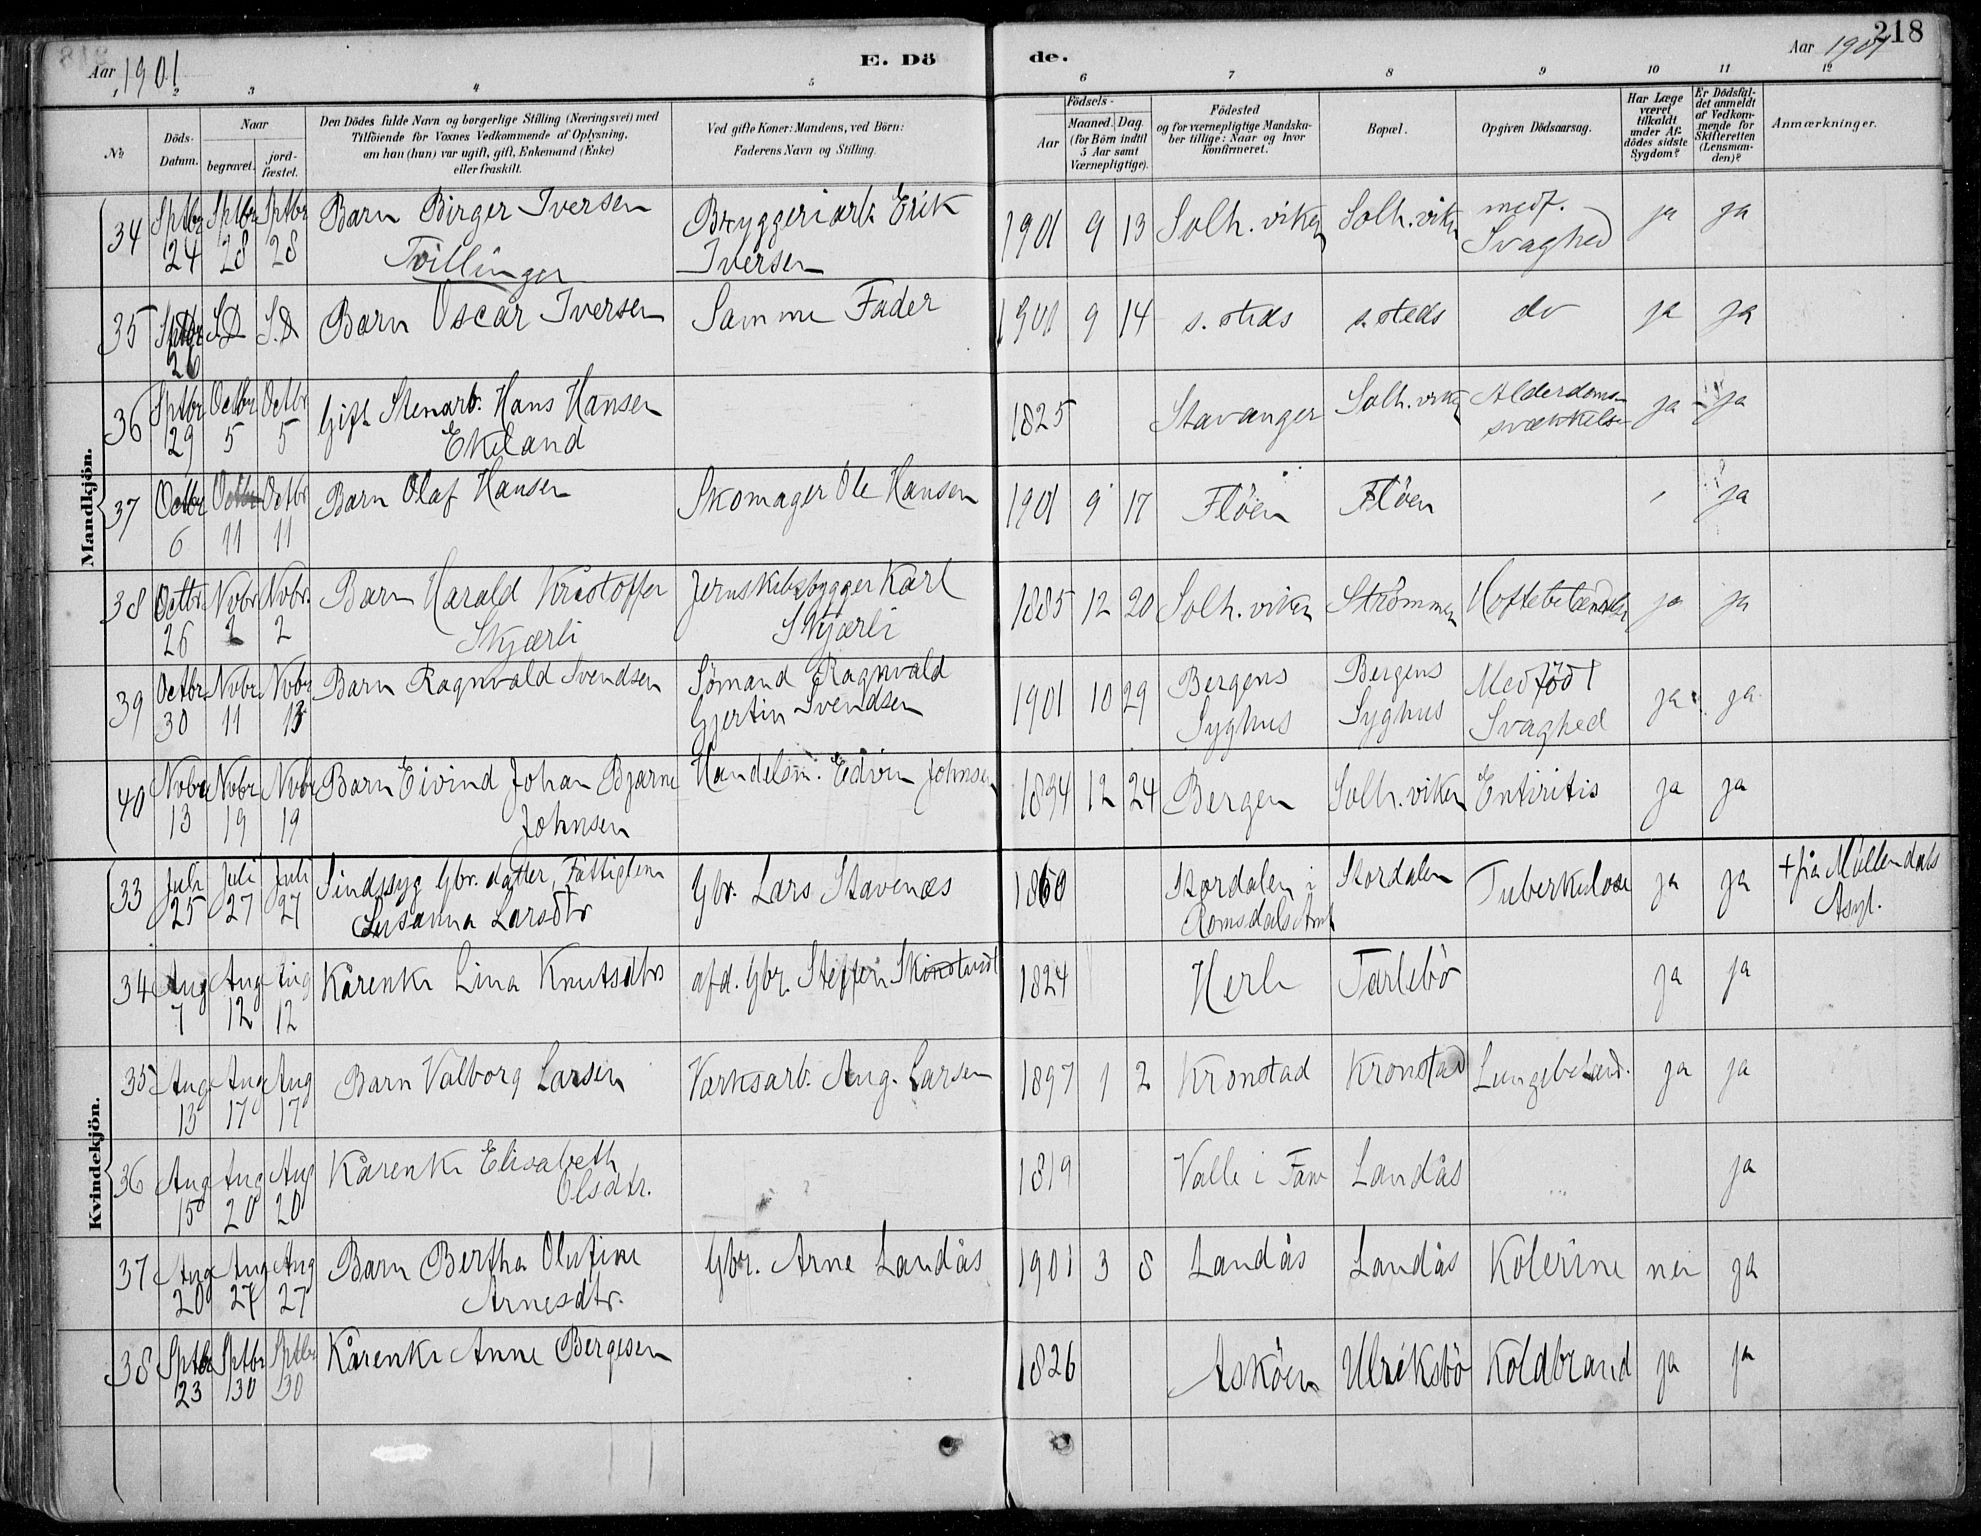 218
Aar 1901
E. Dö
de.
Aar 1901
2 3 4 5 6 7 8 9 10 11 12
№
Döds-Datum.
Naar
begravet.
jord-fæstet.
Den Dödes fulde Navn og borgerlige Stilling (Næringsvei) med
Tilföiende for Voxnes Vedkommende af Oplysning,
om han (hun) var ugift, gift, Enkemand (Enke)
eller fraskilt.
Ved gifte Koner: Mandens, ved Börn:
Faderens Navn og Stilling.
Födsels-
Aar
Maaned. Dag.
(for Börn indtil
5 Aar samt
Værnepligtige).
Födested
og for værnepligtige Mandska-
ber tillige: Naar og hvor
konfirmeret.
Bopæl.
Opgiven Dödsaarsag.
Har Læge
været
tilkaldt
under Af-
dödes sidste
Sygdom?
Er Dödsfal-
det anmeldt
af Vedkom-
mende for
Skifteretten
(Lensman-
den)?
Anmærkninger.
Mandkjön.
34 Sptbr Sptbr Sptbr Barn Birger Iversen Bryggeriarb. Erik 1901 9 13 Solh.viken Solh.viken medf. ja ja
24 28 28 Tvillinger Iversen Svaghed
35 Sptbr S.D S.D Barn Oscar Iversen Samme Fader 1901 9 14 s. steds s. steds do ja ja
26
36 Sptbr Octbr Octbr Gift Stenarb. Hans Hansen 1825 Stavanger Solh.viken Alderdoms- ja ja
29 5 5 Ekeland svækkelse
37 Octbr Octbr Octbr Barn Olaf Hansen Skomager Ole Hansen 1901 9 17 Flöen Flöen ja
6 11 11
38 Octbr Nvbr Nvbr. Barn Harald Kristoffer Jernskibsbygger Karl 1885 12 20 Solh.viken Strömmen Hoftebetændelse ja ja
26 2 2 Skjærli Skjærli
39 Octbr Nvbr Nvbr Barn Ragnvald Svendsen Sömand Ragnvald 1901 10 29 Bergens Bergens Medfödt ja ja
30 11 13 Gjertin Svendsen Syghus Syghus Svaghed
40 Nvbr Nvbr Nvbr Barn Eivind Johan Bjarne Handelsm. Edvin Johnsen 1894 12 24 Bergen Solh.viken Entiritis ja ja
13 19 19 Johnsen
Kvindekjön.
33 Juli Juli Juli Sindssyg Gbr. datter, Fattiglem Gbr. Lars Stavenæs 1860 Stordalen i Stordalen Tuberkulose ja ja + fra Möllendals
25 27 27 Susanna Larsdtr Romsdals Amt Asyl.
34 Aug Aug Aug Kårenke Lina Knutsdtr afd. Gbr. Steffen 1824 Herle Tarlebö ja ja
7 12 12
35 Aug Aug Aug Barn Valborg Larsen Værksarb. Aug. Larsen 1897 1 2 Kronstad Kronstad Lungebetænd. ja ja
13 17 17
36 Aug Aug Aug Kårenke Elisabeth 1819 Valle i Fane Landås ja
15 20 20 Olsdtr.
37 Aug Aug Aug Barn Bertha Olufine Gbr. Arne Landås 1901 3 8 Landås Landås Kolerine nei ja
20 27 27 Arnesdtr.
38 Sptbr Sptbr Sptbr Kårenke Anne Bergesen 1826 Asköen Ulriksbö Koldbrand ja ja
23 30 30